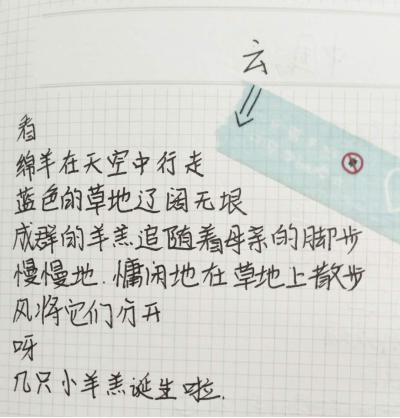 云
看
绵羊在天空中行走
蓝色的草地辽阔无垠
成群的羊羔追随着母亲的脚步
慢慢地.慵闲地在草地上散步
风将它们分开
呀
几只小羊羔诞生啦.